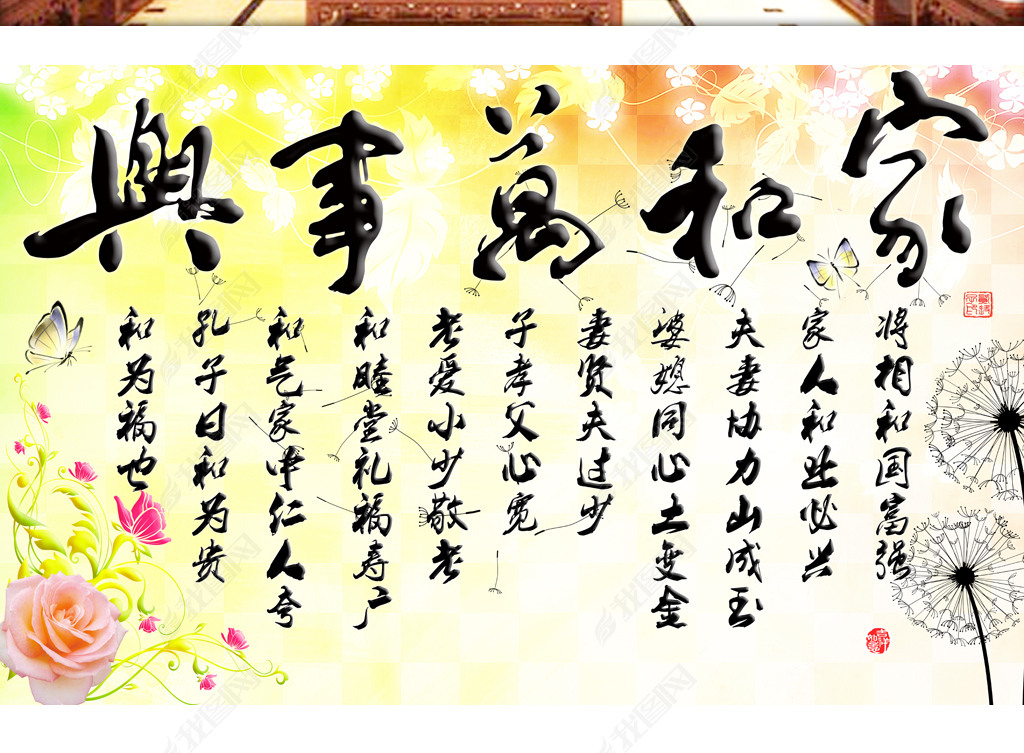 家和萬事興
将相和国富强
家人和业必兴
夫妻协力山成玉
婆媳同心土变金
妻贤夫过少
子孝父心宽
老爱小少敬老
和睦堂礼福寿广
和气家中仁人夸
孔子曰和为贵
和为福也